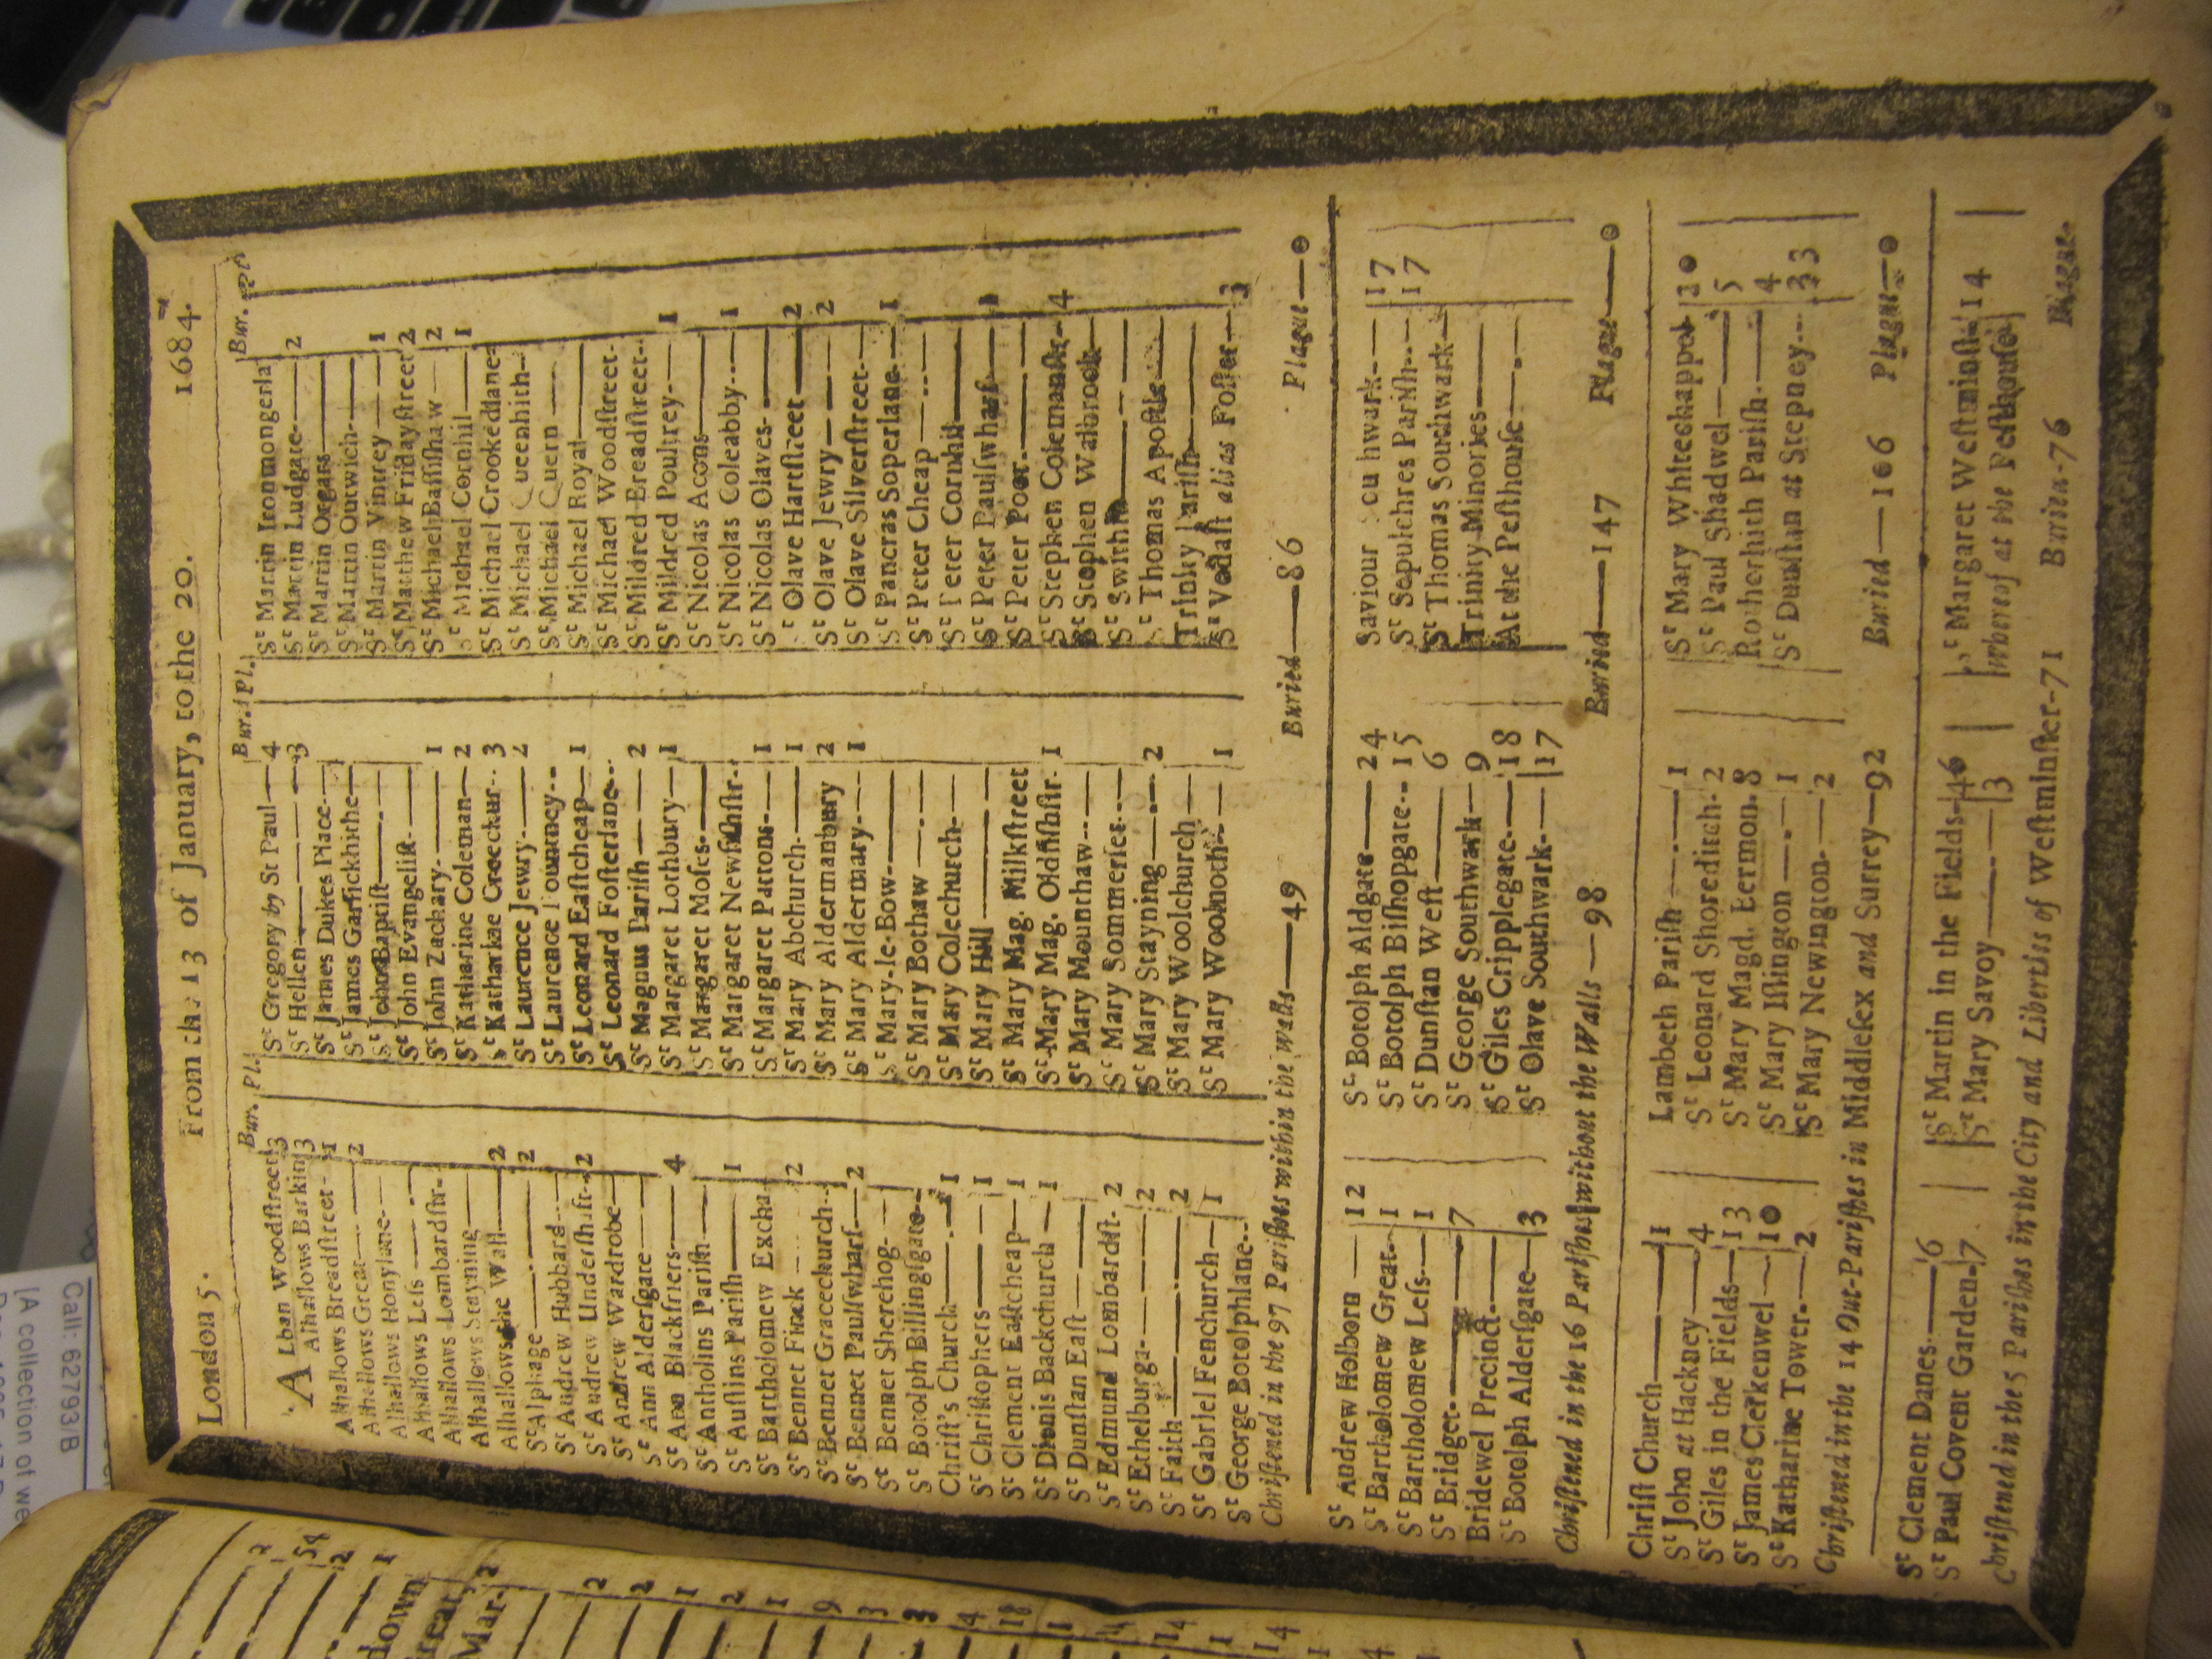 London 5. From the 13 of January, to the 20. 1684.
Bur. Pl.
ALban Woodſtreet 3
Alhallows Barkin 3
Alhallows Breadſtreet- 1
Alhallows Great— 2
Alhallows Honylane-
Alhallows Leſs
Alhallows Lombardſtr.
Alhallows Stayning
Alhallows the Wall 2
St Alphage 2
St Andrew Hubbard
St Andrew Underſhaft 2
St Andrew Wardrobe
St Ann Alderſgate
St Ann Blackfriers 4
St Antholins Pariſh
St Auſtins Pariſh 1
St Bartholomew Excha
St Bennet Finck 2
St Bennet Gracechurch
St Bennet Paulſwharf 2
St Bennet Sherehog
St Botolph Billingſgate
Chriſt's Church 1
St Chriſtophers 1
St Clement Eaſtcheap 1
St Dionis Backchurch 1
St Dunſtan Eaſt
St Edmund Lombardſt. 2
St Ethelburga 2
St Faith 2
St Gabriel Fenchurch 1
St George Botolphlane
Bur. Pl.
St Gregory by St Paul 4
St Hellen 3
St James Dukes Place
St James Garlickhithe
St John Baptiſt
St John Evangeliſt
St John Zachary 1
St Katharine Coleman 2
St Katharine Creechur. 3
St Laurence Jewry 2
St Laurence Pountney
St Leonard Eaſtcheap 1
St Leonard Foſterlane
St Magnus Pariſh 2
St Margaret Lothbury 1
St Margaret Moſes
St Margaret Newfiſhſtr.
St Margaret Pattons 1
St Mary Abchurch 1
St Mary Aldermanbury 2
St Mary Aldermary 1
St Mary-le-Bow
St Mary Bothaw
St Mary Colechurch
St Mary Hill
St Mary Mag. Milkſtreet
St Mary Mag. Oldfiſhſtr. 1
St Mary Mounthaw
St Mary Sommerſet
St Mary Stayning 2
St Mary Woolchurch
St Mary Woolnoth 1
Bur.
St Martin Ironmongerla
St Martin Ludgate 2
St Martin Orgars
St Martin Outwich
St Martin Vintrey 1
St Matthew Fridayſtreet 2
St Michael Baſſiſhaw 2
St Michael Cornhil 1
St Michael Crookedlane
St Michael Queenhith
St Michael Quern
St Michael Royal
St Michael Woodſtreet
St Mildred Breadſtreet
St Mildred Poultrey 1
St Nicolas Acons
St Nicolas Coleabby 1
St Nicolas Olaves
St Olave Hartſtreet 2
St Olave Jewry 2
St Olave Silverſtreet
St Pancras Soperlane 1
St Peter Cheap
St Peter Cornhil
St Peter Paulſwharf 1
St Peter Poor
St Stephen Colemanſtr. 4
St Stephen Walbrook
St Swithin
St Thomas Apoſtle
Trinity Pariſh
St Vedaſt alias Foſter 3
Chriſtened in the 97 Pariſhes within the walls—49 Buried—86 Plague—0
St Andrew Holborn 12
St Bartholomew Great 1
St Bartholomew Leſs 1
St Bridget 7
Bridewel Precinct
St Botolph Alderſgate 3
St Botolph Aldgate 24
St Botolph Biſhopgate 15
St Dunſtan Weſt 6
St George Southwark 9
St Giles Cripplegate 18
St Olave Southwark 17
Saviour 17
St Sepulchres Pariſh 17
St Thomas Southwark
Trinity Minories
At the Peſthouſe
Chriſtened in the 16 Pariſhes without the Walls—98 Buried—147 Plague—0
Chriſt Church 1
St John at Hackney 4
St Giles in the Fields 13
St James Clerkenwel 10
St Katharine Tower 2
Lambeth Pariſh 1
St Leonard Shoreditch 2
St Mary Magd. Bermon. 8
St Mary Iſlington 1
St Mary Newington 2
St Mary Whitechappel 20
St Paul Shadwel 5
Rotherhith Pariſh 4
St Dunſtan at Stepney 33
Chriſtened in the 14 Out-Pariſhes in Middleſex and Surrey—92 Buried—106 Plague—0
St Clement Danes 6
St Paul Covent Garden 7
St Martin in the Fields 46
St Mary Savoy 3
St Margaret Weſtminſter 14
whereof at the Peſthouſe
Chriſtened in the 5 Pariſhes in the City and Liberties of Weſtminſter-71 Buried-76 Plague-
Call: 62793/B
[A collection of we